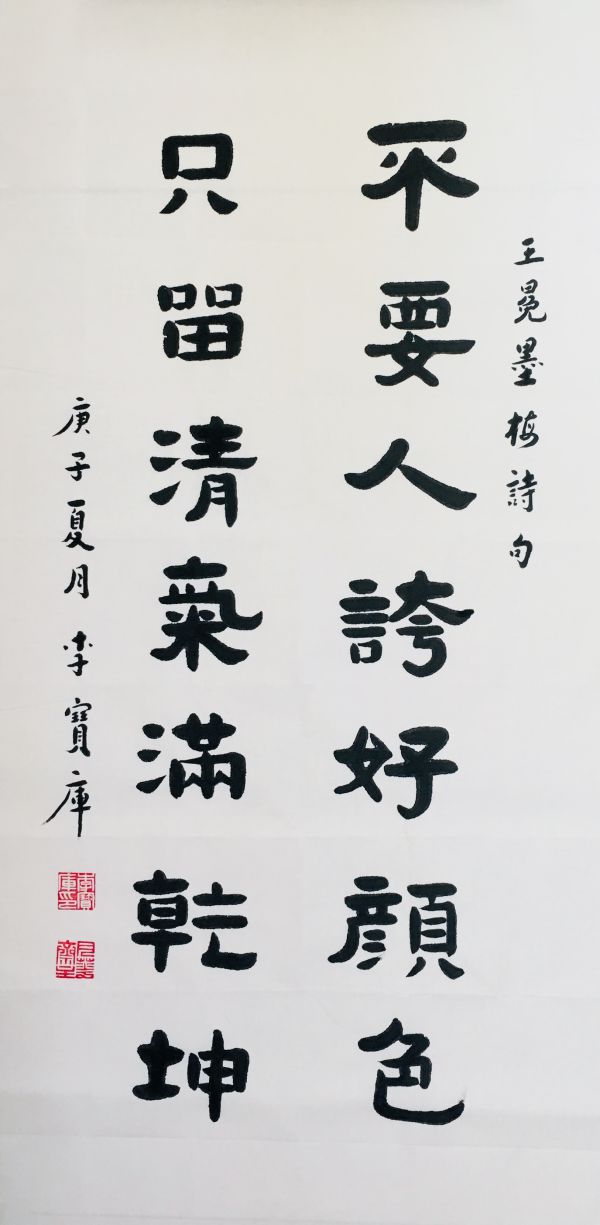 王冕墨梅詩句
不要人誇好顔色
只留清氣滿乾坤
庚子夏月 李寶庫
李寶庫印